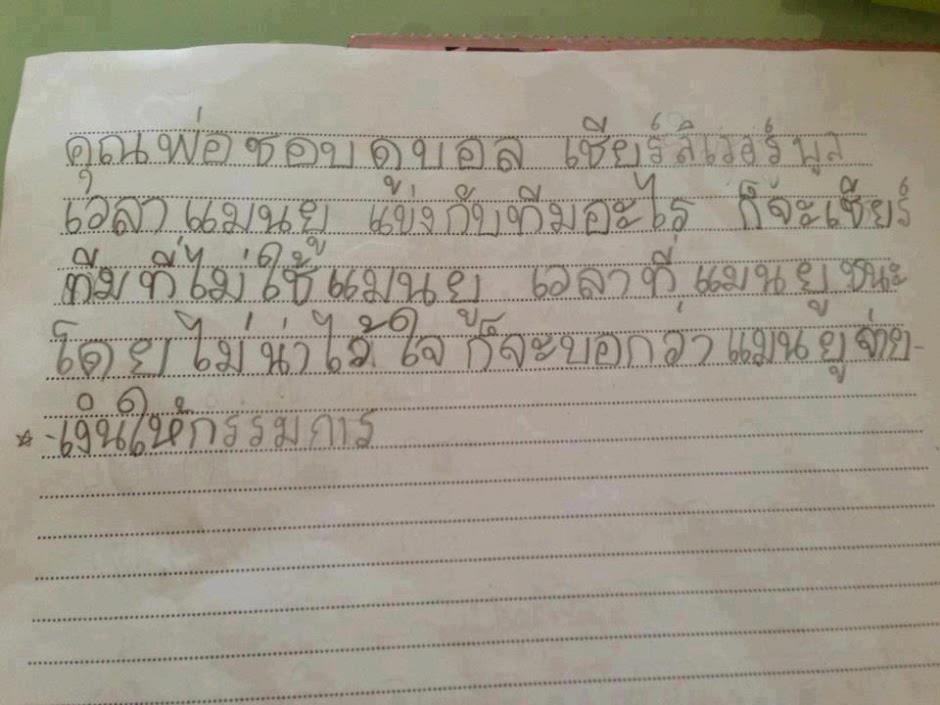 คุณพ่อชอบดูบอล เชียร์ลิเวอร์พูล
เวลาแมนยู แข่งกับทีมอะไร ก็จะเชียร์
ทีมที่ไม่ใช้แมนยู เวลาที่แมนยูชนะ
โดยไม่น่าไว้ใจ ก็จะบอกว่าแมนยูจ่าย-
* -เงินให้กรรมการ